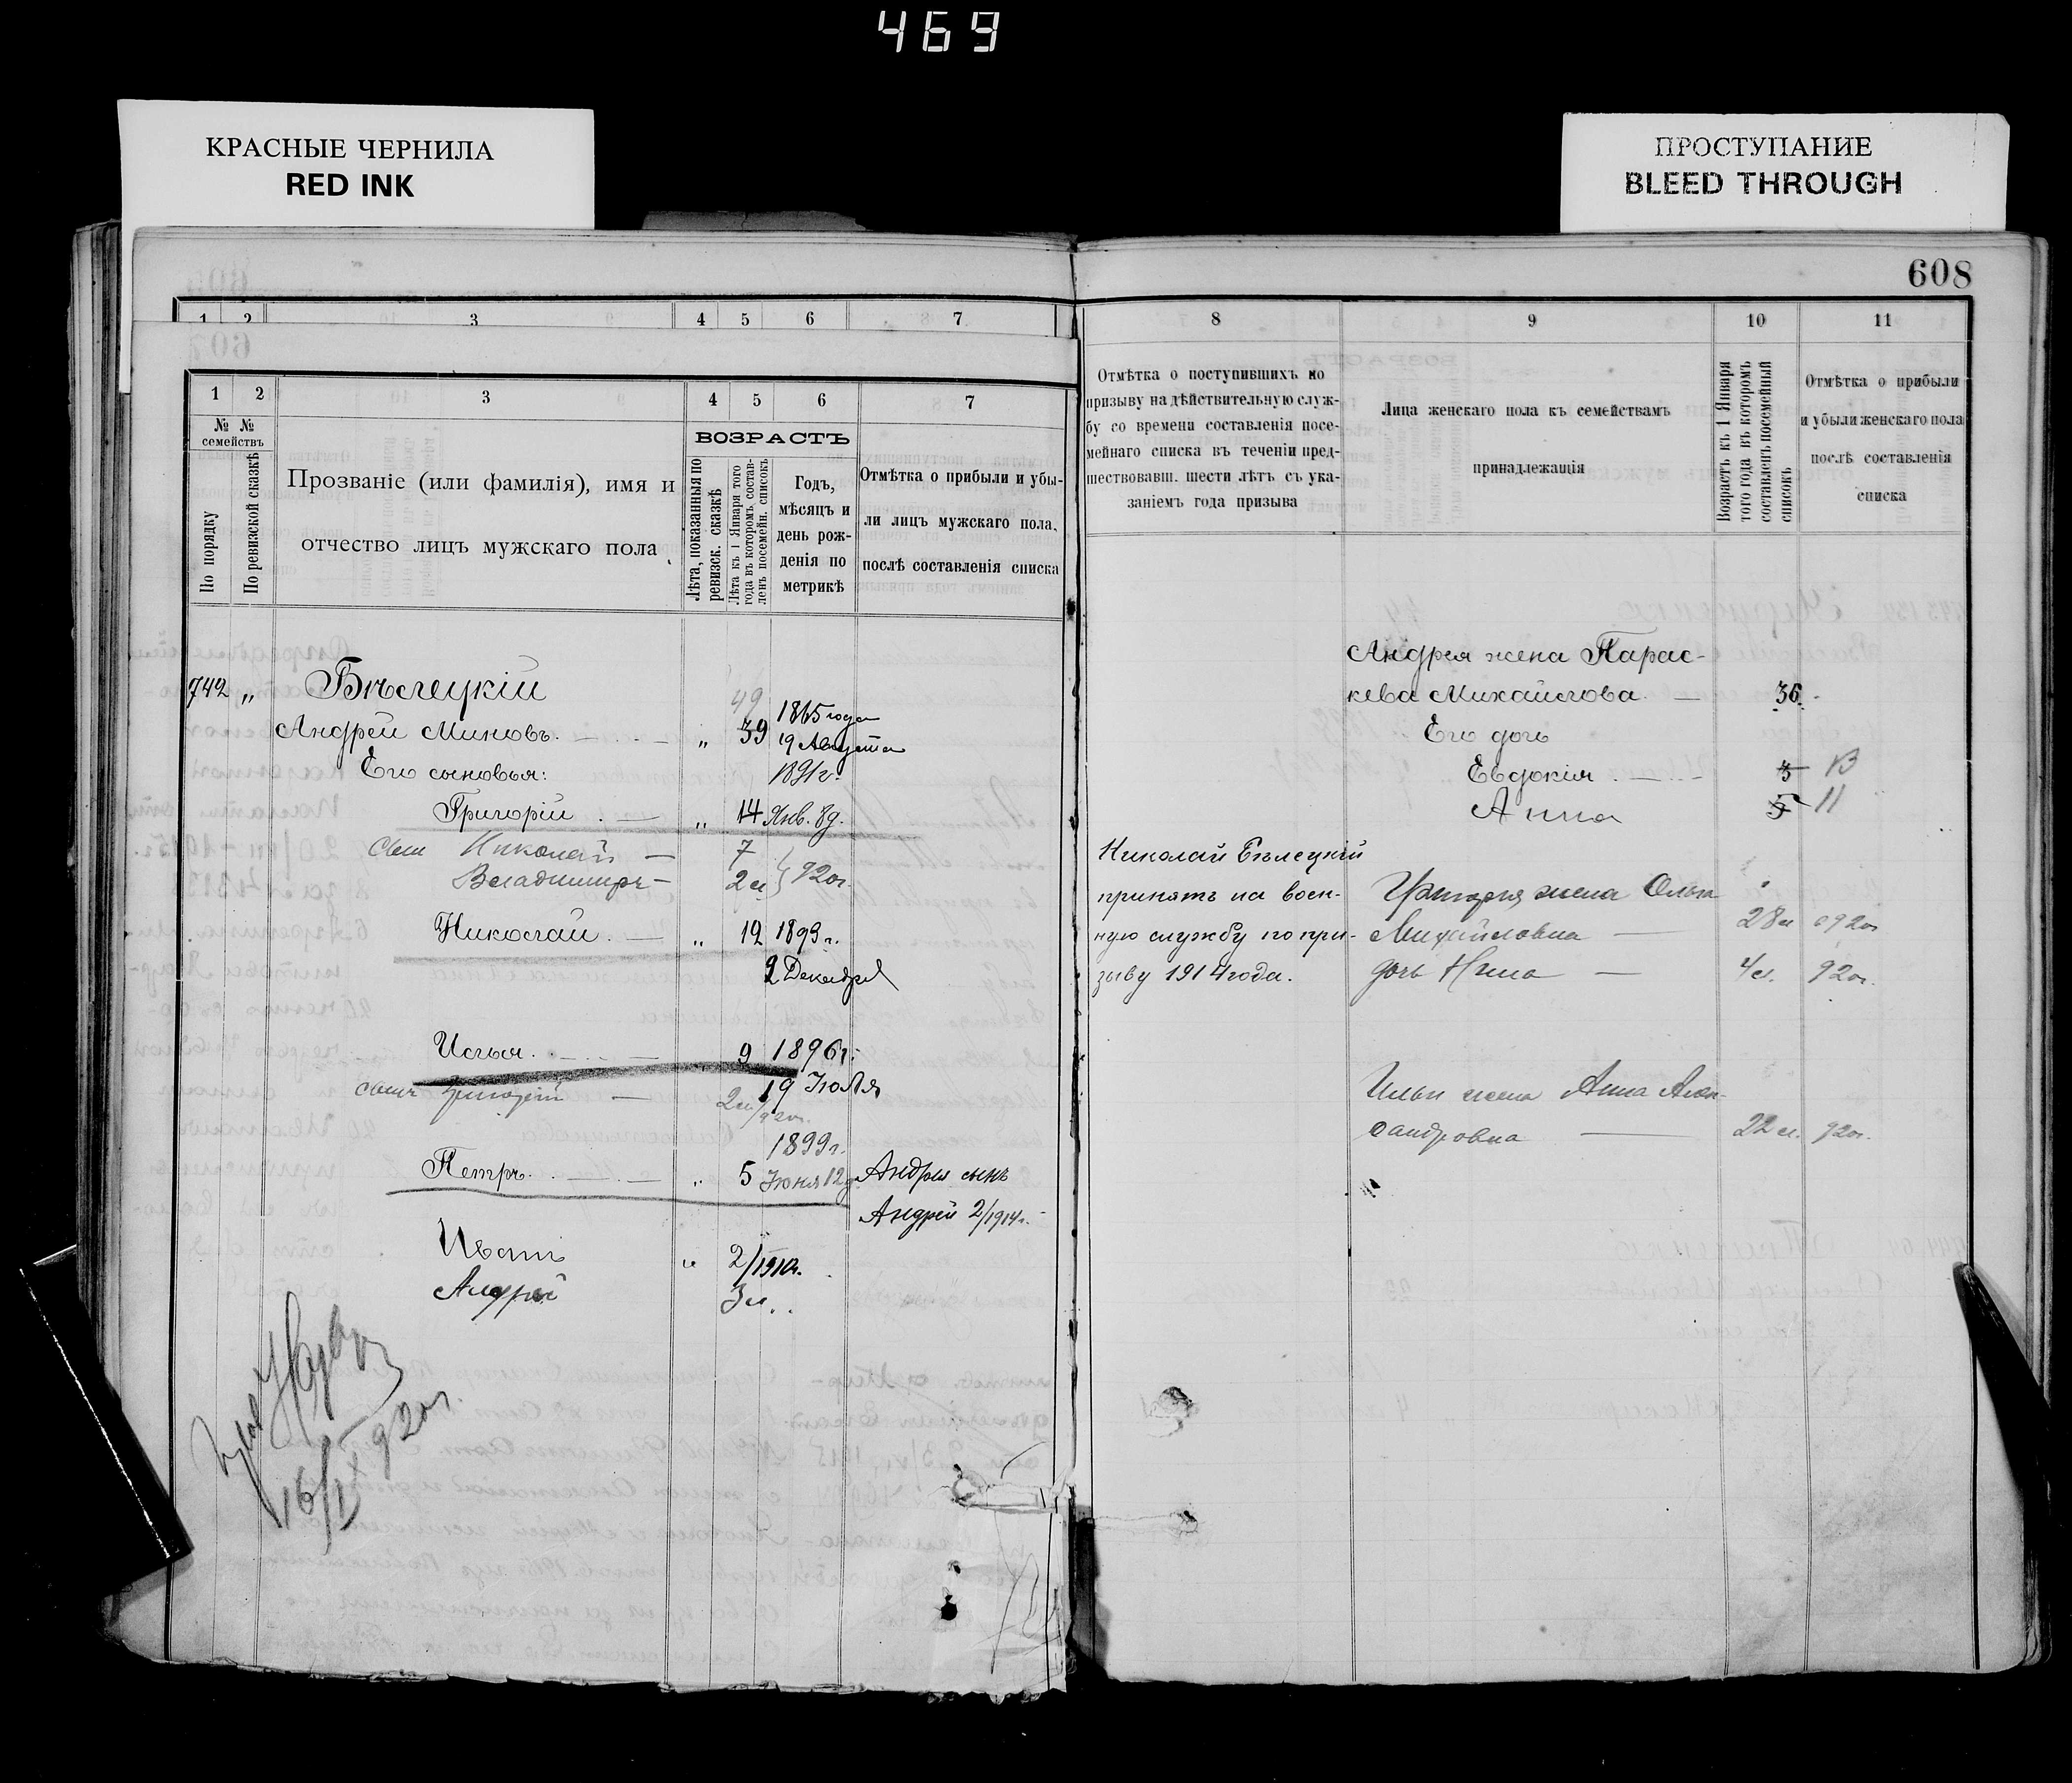 469
КРАСНЫЕ ЧЕРНИЛА
RED INK
ПРОСТУПАНИЕ
BLEED THROUGH
608
1 2 3 4 5 6 7
8 9 10 11
1 2 3 4 5 6 7
№ № семействъ
По порядку
По ревизской сказкѣ
Прозваніе (или фамилія), имя и
отчество лицъ мужскаго пола
ВОЗРАСТЪ
Лѣта, показанныя по
ревизск. сказкѣ
Лѣта къ 1 Января того
года въ которомъ состав-
ленъ посемейн. списокъ
Годъ,
мѣсяцъ и
день рож-
денія по
метрикѣ
Отмѣтка о прибыли и убы-
ли лицъ мужскаго пола,
послѣ составленія списка
Отмѣтка о поступившихъ по
призыву на дѣйствительную служ-
бу со времени составленія посе-
мейнаго списка въ теченіи пред-
шествовавш. шести лѣтъ съ ука-
заніемъ года призыва
Лица женскаго пола къ семействамъ
принадлежащія
Возрастъ къ 1 Января
того года въ которомъ
составленъ посемейный
списокъ
Отмѣтка о прибыли
и убыли женскаго пола
послѣ составленія
списка
742 „ Бѣлецкій
49
1865 года
Андрей Миновъ. „ 39 19 Августа
Его сыновья: 1891г.
Григорій „ 14 Янв. 8д.
сын Николай — 7
Владимиръ — 2 л } 920г.
Николай. — „ 12 1893 г.
2 Декабря
Илья. — 9 1896г.
19 Іюля
сынъ Григорій — 2 л/920г.
1899г.
Петръ. — „ 5 Іюня 12д. Андрея сынъ
Андрей 2/1914г.
Иванъ „ 2/1910г.
Андрей 3 л..
16/IX 920г.
Андрея жена Парас-
кева Михайлова — 36.
Его дочь
Евдокія — 3 13
Анна 5 11
Николай Бѣлецкій
принятъ на воен-
ную службу по при-
зыву 1914 года.
Григорія жена Ольга
Михайловна — 28 л 920г
дочь Нина — 4 л. 920г.
Ильи жена Анна Алек-
сандровна — 22 л. 920г.